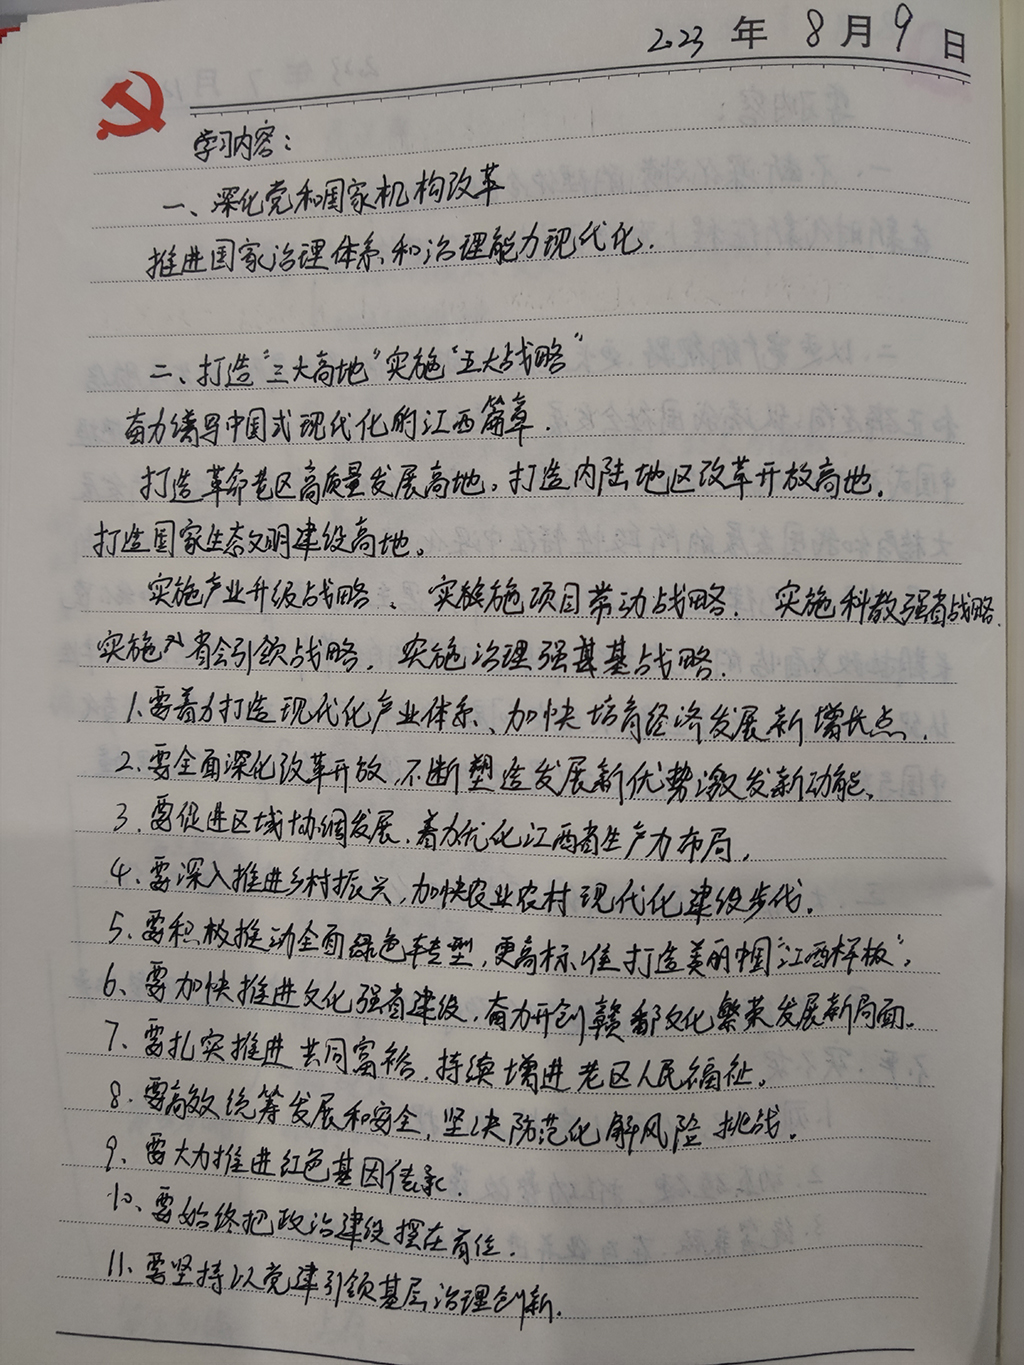 2023 年 8 月 9 日
学习内容：
一、深化党和国家机构改革
推进国家治理体系和治理能力现代化.
二、打造“三大高地”实施“五大战略”
奋力谱写中国式现代化的江西篇章.
打造革命老区高质量发展高地。打造内陆地区改革开放高地.
打造国家生态文明建设高地。
实施产业升级战略、实施项目带动战略. 实施科教强省战略.
实施省会引领战略. 实施治理强基战略.
1.要着力打造现代化产业体系、加快培育经济发展新增长点.
2.要全面深化改革开放、不断塑造发展新优势激发新动能、
3.要促进区域协调发展、着力优化江西省生产力布局.
4.要深入推进乡村振兴,加快农业农村现代化建设步伐.
5.要积极推动全面绿色转型,更高标准打造美丽中国“江西样板”.
6、要加快推进文化强省建设,奋力开创赣鄱文化繁荣发展新局面.
7.要扎实推进共同富裕.持续增进老区人民福祉。
8.要高效统筹发展和安全,坚决防范化解风险挑战.
9、要大力推进红色基因传承.
10、要始终把政治建设摆在首位.
11、要坚持以党建引领基层治理创新.